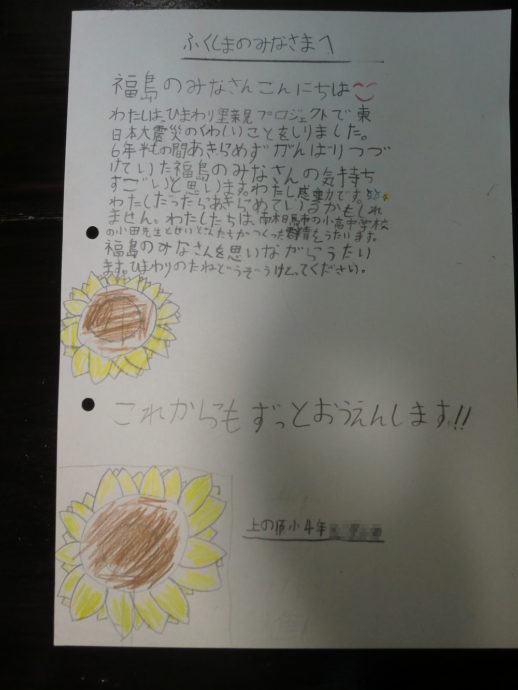 ふくしまのみなさまへ
福島のみなさんこんにちは
わたしは、ひまわり里親プロジェクトで東
日本大震災のくわしいことをしりました。
6年半もの間あきらめずがんばりつづ
けていた福島のみなさんの気持ち
すごいと思います。わたし感動です。
わたしだったらあきらめているかもしれ
ません。わたしたちは、南相馬市の小高中学校
の小田先生とせいとたちがつくった群青をうたいます。
福島のみなさんを思いながらうたい
ます。ひまわりのたねどうぞうけとってください。
これからもずっとおうえんします!!
上の原小4年